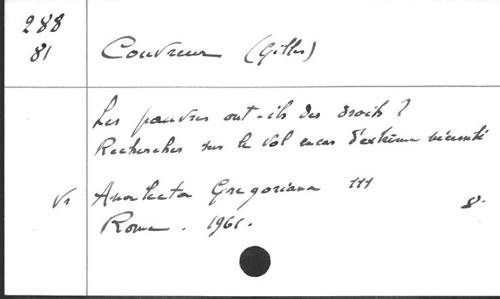 288
81
Couvreur (Gilles)
Les pauvres ont-ils des droits ?
Recherches sur le vol en cas d'extrême nécessité
Vs Analecta Gregoriana 111
8°
Rome. 1961.